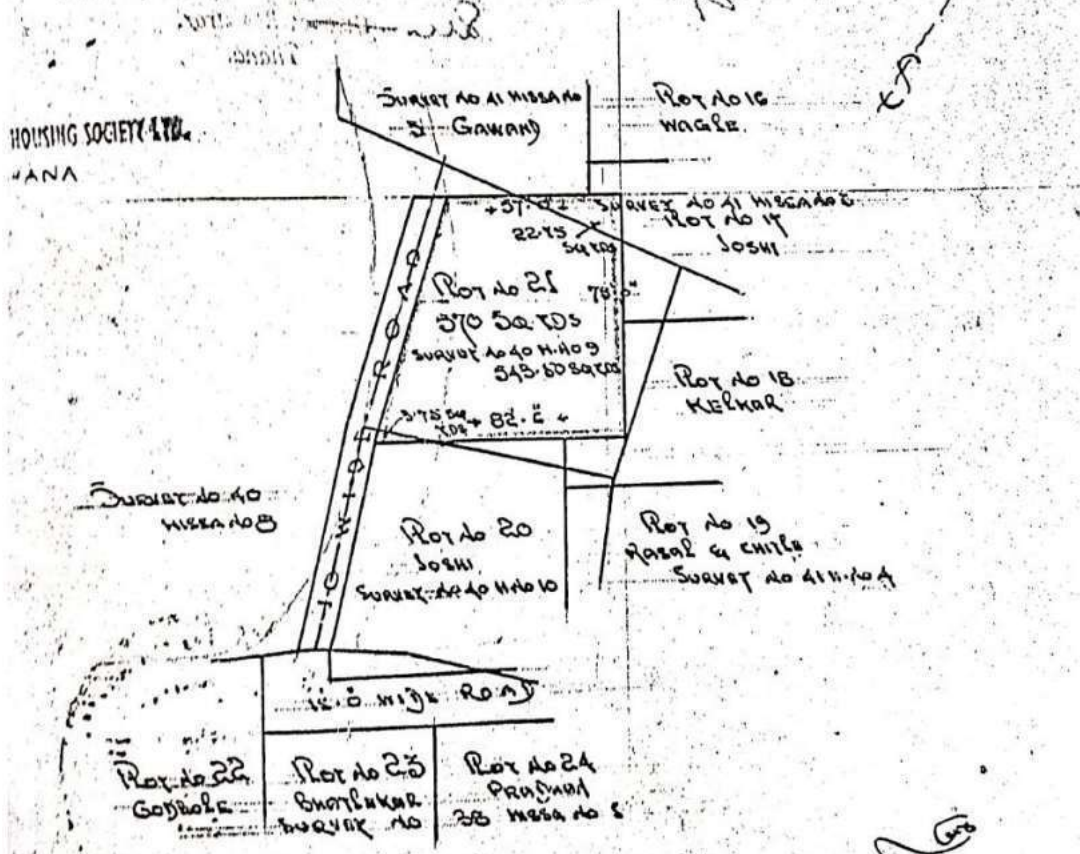 HOUSING SOCIETY LTD.
SURVEY NO 41 HISSA NO
5 GAWAND
PLOT NO 16
WAGLE.
SURVEY NO 41 HISSA NO
PLOT NO 17
JOSHI
22.75
SQ YDS
PLOT NO 21
570 SQ. YDS
SURVEY NO 40 H. NO 9
SQ YDS
78'
82'.
PLOT NO 18
KELKAR
10' WIDE ROAD
SURVEY NO 40
HISSA NO 8
PLOT NO 20
JOSHI
SURVEY NO 40 H NO 10
PLOT NO 19
& CHITLE
SURVEY NO 41 H. NO 4
WIDE ROAD
PLOT NO 22
GODBOLE
PLOT NO 23
SURVEY NO
PLOT NO 24
PRADHAN
38 HISSA NO